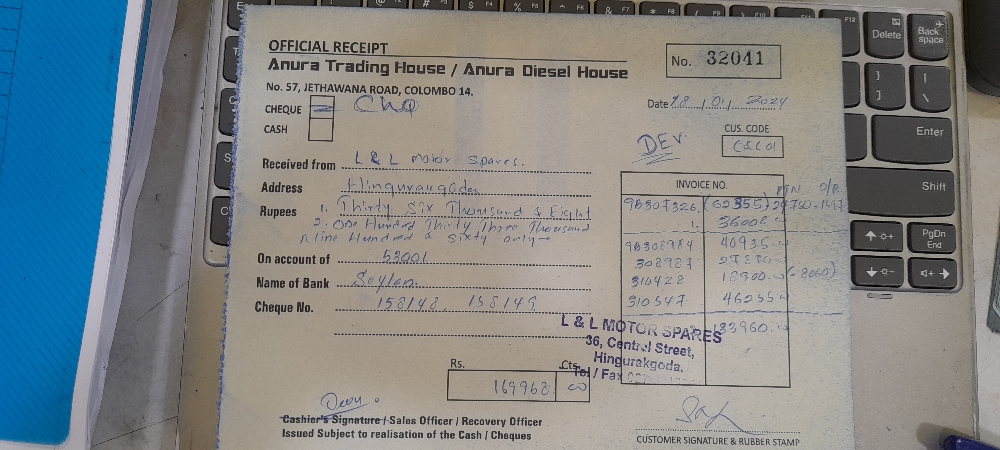 OFFICIAL RECEIPT
Anura Trading House / Anura Diesel House
No. 57, JETHAWANA ROAD, COLOMBO 14.
No. 32041
CHEQUE Chq
CASH
Date 18 . 01 . 2024
DEV
CUS. CODE
Received from L & L Motor Spares.
Address
Rupees 1. Thirty Six Thousand & Eight
2. One Hundred Thirty Three Thousand
Nine Hundred & Sixty only
On account of 53001
Name of Bank Seylan
Cheque No. 158148, 158149
INVOICE NO.
98307326,
1. 36008
98308984 40935
308987 27870
310428 18900 (-8060)
310547 46255
133960
L & L MOTOR SPARES
36, Central Street,
Hingurakgoda.
Tel / Fax
Rs. Cts.
169968 00
Cashier's Signature / Sales Officer / Recovery Officer
Issued Subject to realisation of the Cash / Cheques
CUSTOMER SIGNATURE & RUBBER STAMP
Delete
Back space
Enter
Shift
PgDn
End